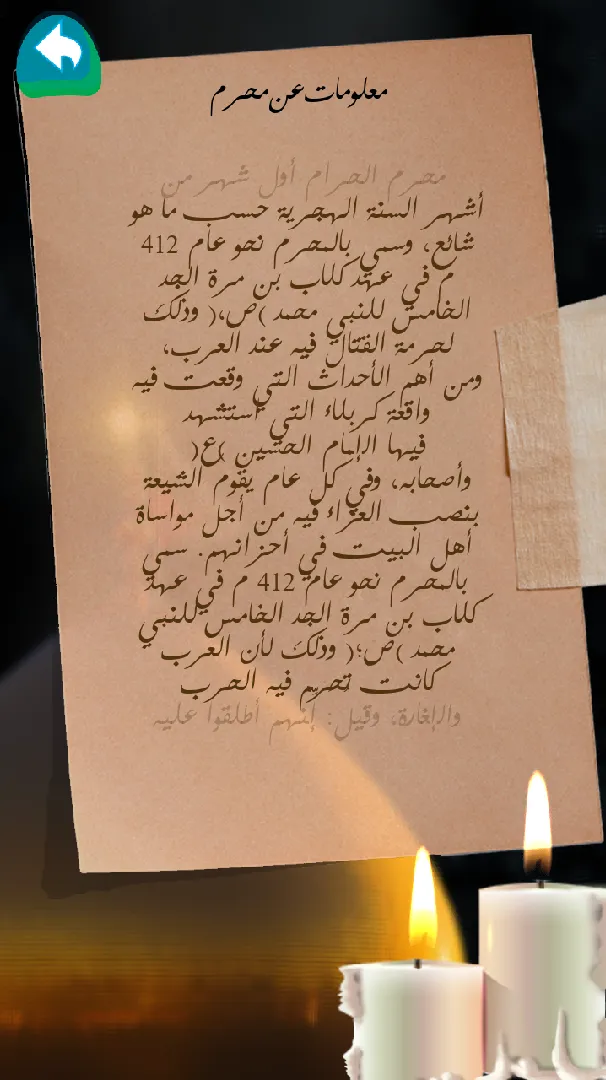 معلومات عن محرم
محرم الحرام أول شهر من
أشهر السنة الهجرية حسب ما هو
شائع، وسمي بالمحرم نحو عام 412
م في عهد كلاب بن مرة الجد
الخامس للنبي محمد )ص،( وذلك
لحرمة القتال فيه عند العرب،
ومن أهم الأحداث التي وقعت فيه
واقعة كربلاء التي استشهد
فيها الإمام الحسين )ع(
وأصحابه، وفي كل عام يقوم الشيعة
بنصب العزاء فيه من أجل مواساة
أهل البيت في أحزانهم. سُمي
بالمحرم نحو عام 412 م في عهد
كلاب بن مرة الجد الخامس للنبي
محمد )ص؛( وذلك لأن العرب
كانت تحرم فيه الحرب
والإغارة، وقيل: إنهم أطلقوا عليه